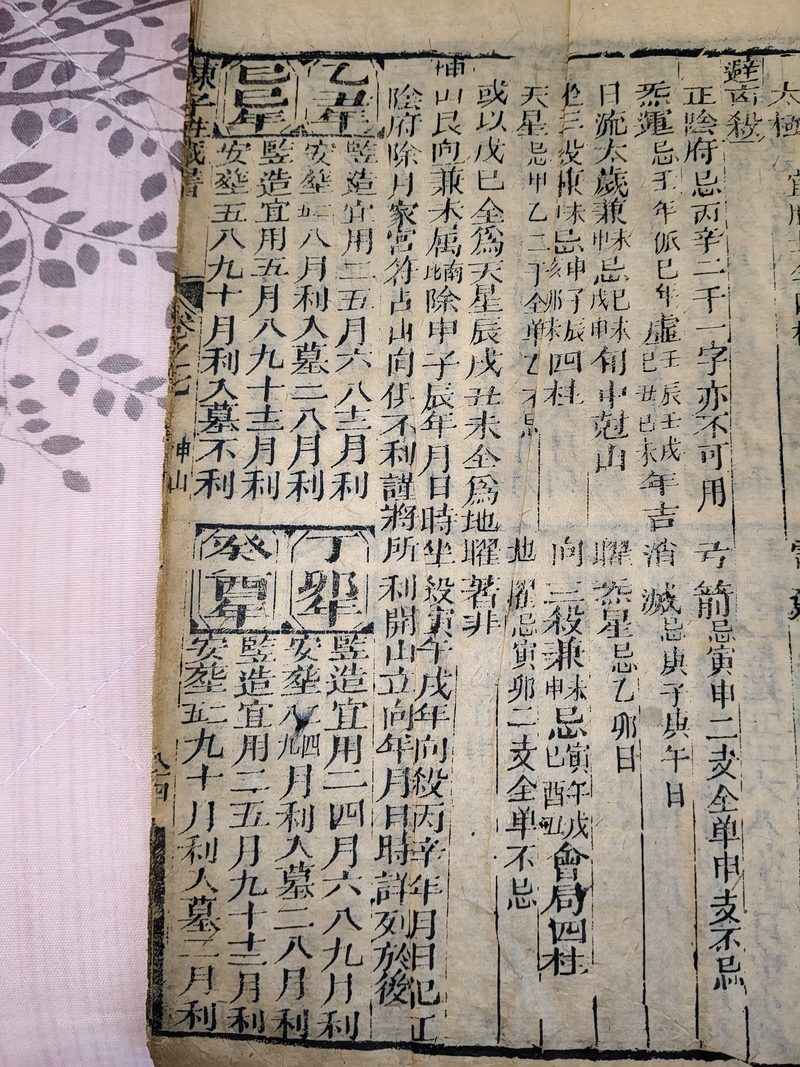 太極
避殺
正陰府忌丙辛二干一字亦不可用 弓箭忌寅申二支全单申支不忌
炁運忌壬年派巳年虛壬辰壬戌己丑己未年吉 消滅忌庚子庚午日
日流太歲兼未申忌己未戊申旬中尅山 曜炁星忌乙卯日
坐三殺兼未申忌申子辰亥卯未四柱 向三殺兼未申忌寅午戌巳酉丑會局四柱
天星忌甲乙二干全单乙不忌 地曜忌寅卯二支全单不忌
或以戊巳全為天星辰戌丑未全為地曜著非
坤山艮向兼未属 除申子辰年月日時坐殺寅午戌年向殺丙辛年月日犯正
陰府除月家宮符占山向俱不利謹將所利開山立向年月日時詳列於後
乙丑年
竪造宜用二五月六八十二月利
安塟 八月利入墓二八月利
丁卯年
竪造宜用二四月六八九月利
安塟 月利入墓二八月利
己巳年
竪造宜用五月八九十十二月利
安塟五八九十月利入墓不利
癸酉年
竪造宜用二五月九十十二月利
安塟 九十月利入墓二月利
陳子性藏書 卷之七 坤山 八十四